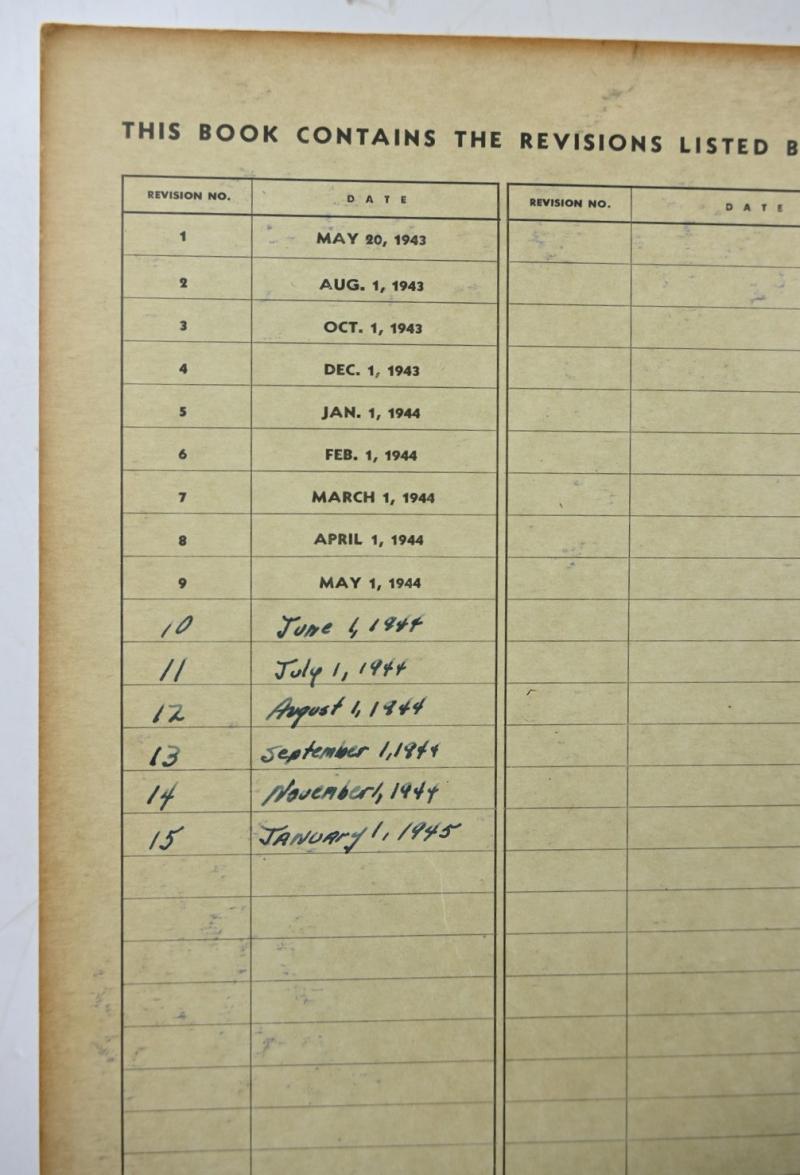 THIS BOOK CONTAINS THE REVISIONS LISTED B
REVISION NO. DATE REVISION NO. DATE
1 MAY 20, 1943
2 AUG. 1, 1943
3 OCT. 1, 1943
4 DEC. 1, 1943
5 JAN. 1, 1944
6 FEB. 1, 1944
7 MARCH 1, 1944
8 APRIL 1, 1944
9 MAY 1, 1944
10 June 1, 1944
11 July 1, 1944
12 August 1, 1944
13 September 1, 1944
14 November 1, 1944
15 JANUARy 1, 1945